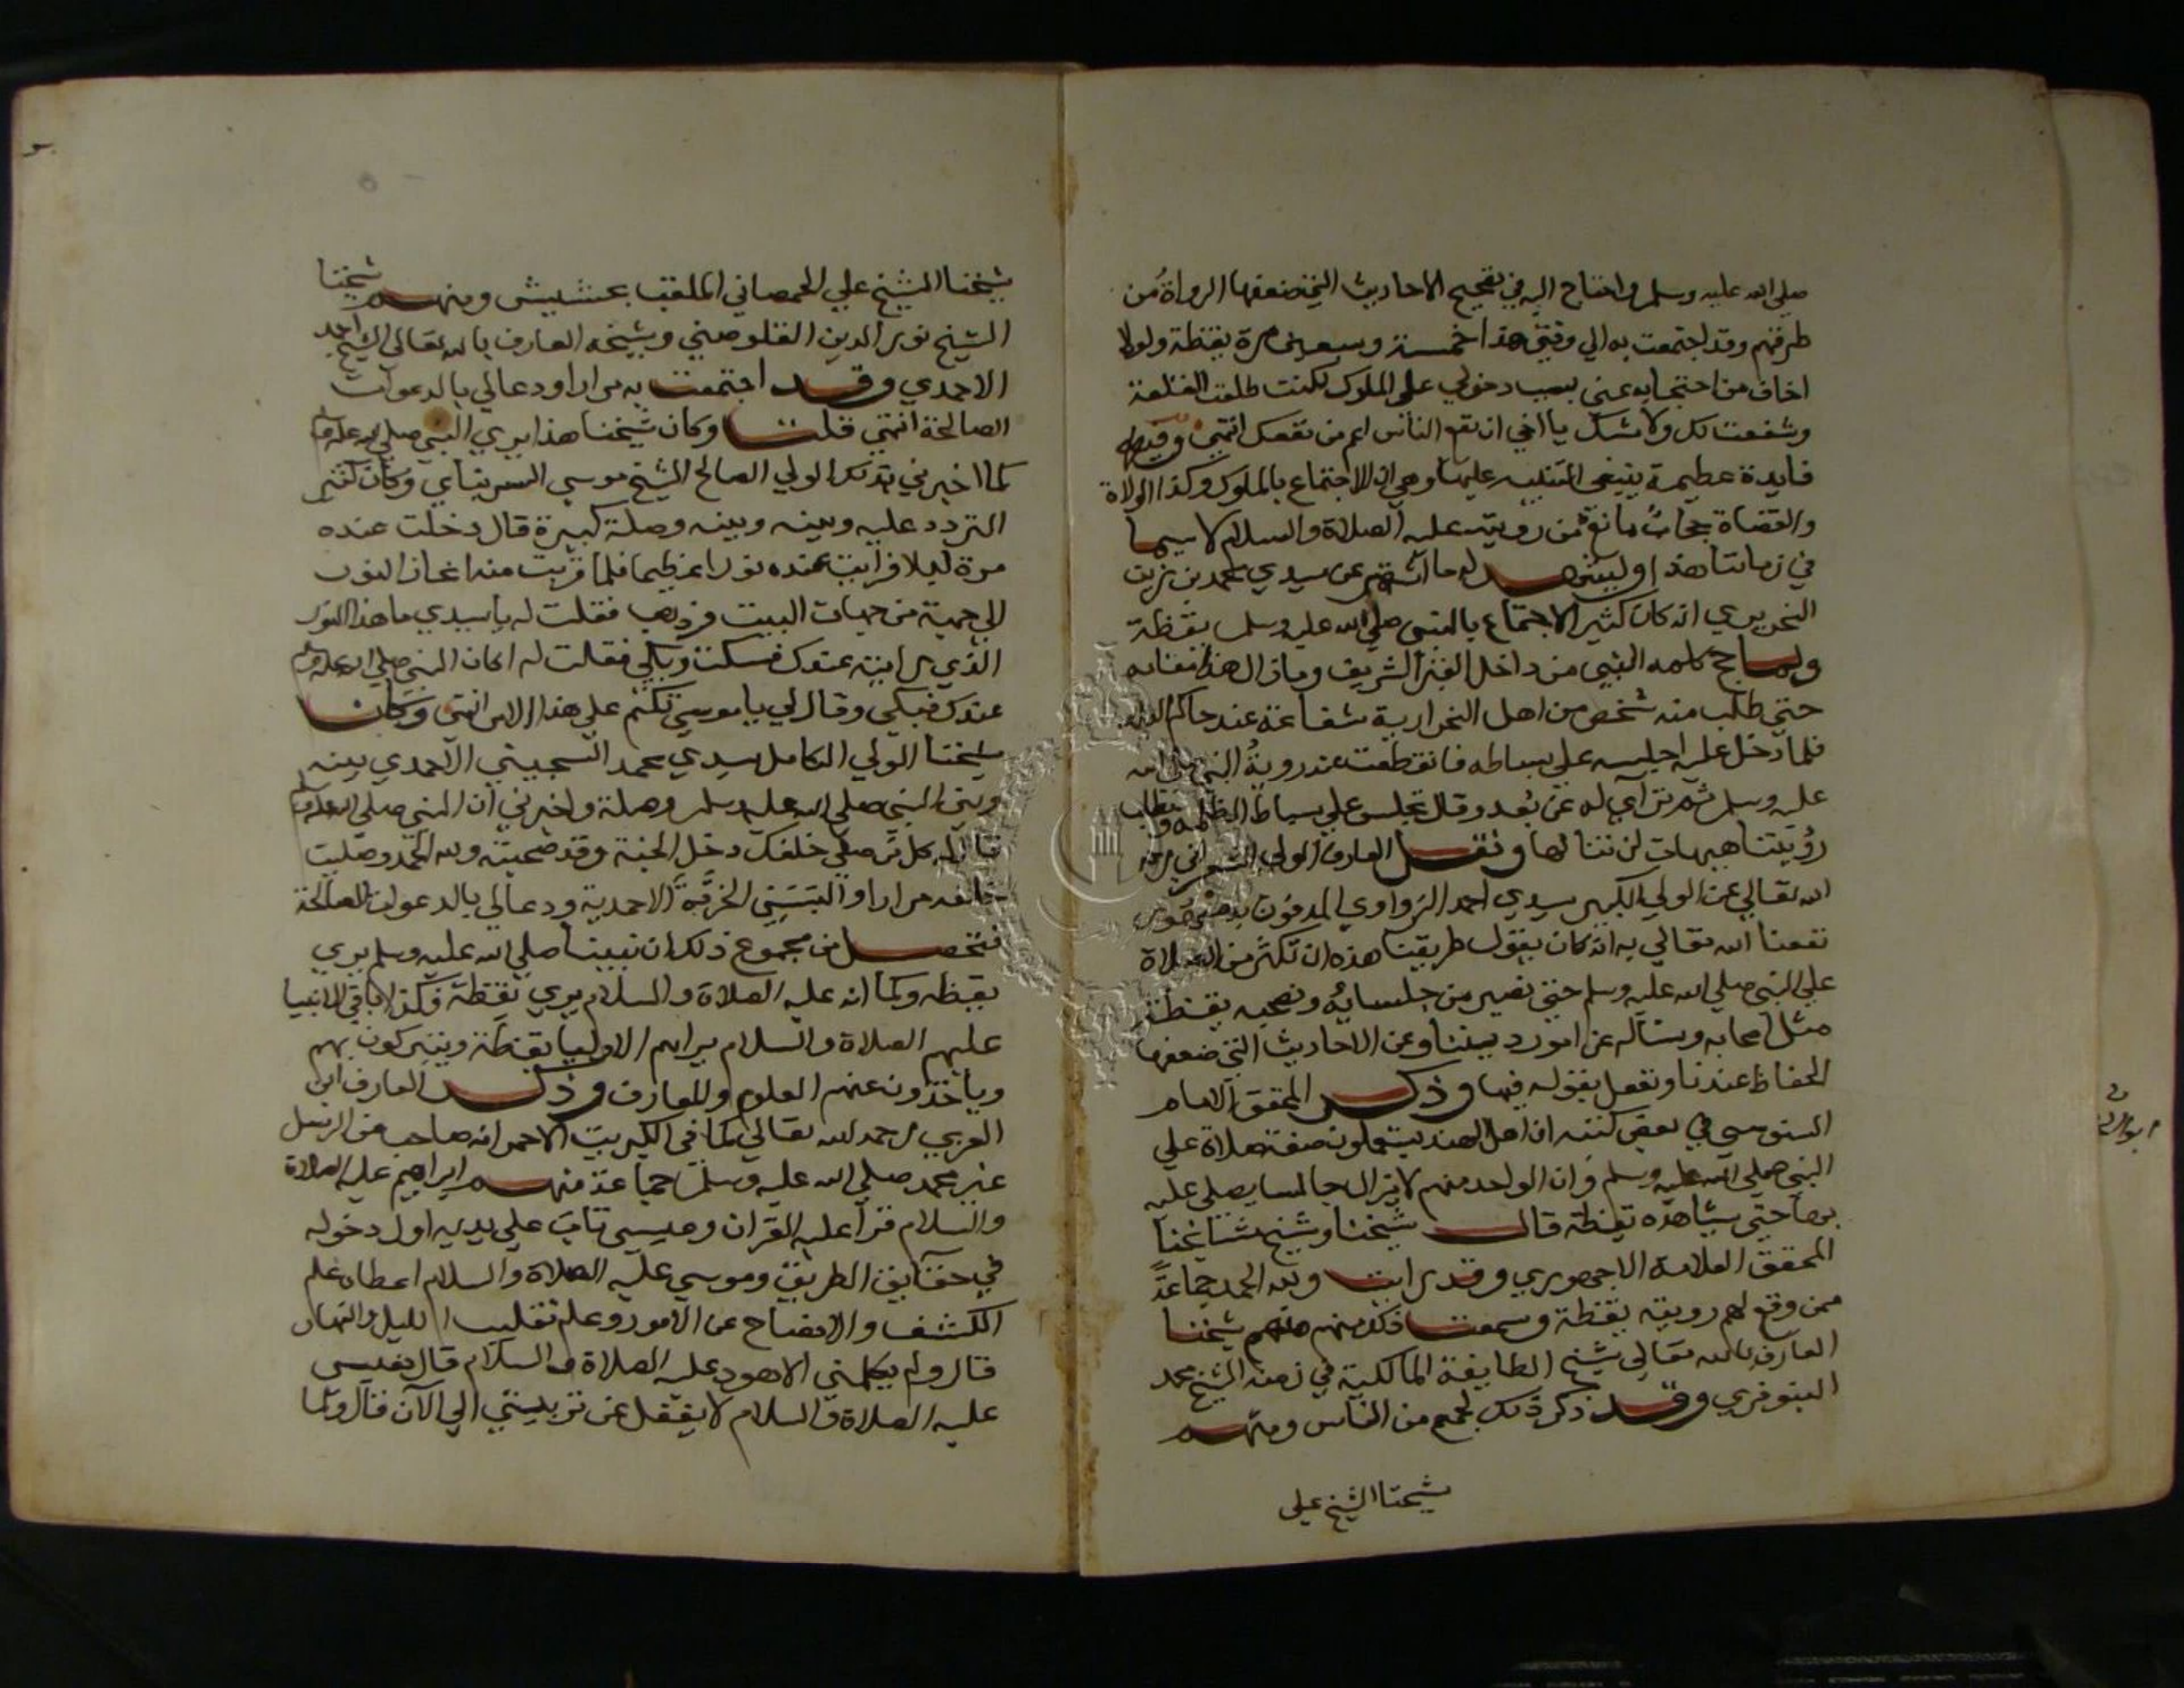 صلى الله عليه وسلم واحتاج اليه في تصحيح الاحاديث التي ضعفها الرواة من
طرقهم وقد اجتمعت به الي وقتي هذا خمسة وسبعين مرة يقظة ولولا
اخاف من احتجابه عني بسبب دخولي على الملوك لكنت طلعت القلعة
وشفعت لك ولا شك يا اخي ان نفع الناس اهم من نفعك انتهي وفيه
فايدة عظيمة ينبغي التنبيه عليها وهي ان الاجتماع بالملوك وكذا الولاة
والقضاة حجاب مانع من رويته عليه الصلاة والسلام لا سيما
في زماننا هذا وليشهد له ما اشتهر عن سيدي محمد بن زين
النحريري انه كان كثير الاجتماع بالنبي صلي الله عليه وسلم يقظة
ولما حج كلمه النبي من داخل القبر الشريف وما زال هذا مقامه
حتي طلب منه شخص من اهل النحرارية شفاعة عند حاكم البلد
فلما دخل عليه اجلسه علي بساطه فانقطعت عنه روية النبي صلي الله
عليه وسلم ثم ترآي له عن بعد وقال تجلس علي بساط الظلمة وتطلب
رؤيتنا هيهات لن تنالها ونقل العارف الولي الشعراني رحمه
الله تعالي عن الولي الكبير سيدي احمد الزواوي المدفون بدمنهور
نفعنا الله تعالي به انه كان يقول طريقنا هذه ان نكثر من الصلاة
علي النبي صلي الله عليه وسلم حتي نصير من جلسايه ونصحبه يقظة
مثل اصحابه ونساله عن امور ديننا وعن الاحاديث التي ضعفها
الحفاظ عندنا ونعمل بقوله فيها وذكر المحقق الامام
السنوسي في بعض كتبه ان اهل الهند يستعملون صفة صلاة علي
النبي صلي الله عليه وسلم وان الواحد منهم لا يزال جالسا يصلي عليه
بها حتي يشاهده يقظة قال شيخنا وشيخ مشايخنا
المحقق العلامة الاجهوري وقد رايت ولله الحمد جماعة
ممن وقع لهم رويته يقظة وسمعت ذلك منهم منهم شيخنا
العارف بالله تعالي شيخ الطايفة المالكية في زمنه الشيخ محمد
البنوفري وقد ذكر ذلك لجمع من الناس ومنهم
شيخنا الشيخ علي
شيخنا الشيخ علي الحمصاني الملقب بحشيش ومنهم شيخنا
الشيخ نور الدين القلوصني وشيخه العارف بالله تعالى الشيخ احمد
الاحمدي وقد اجتمعت به مرارا ودعا لي بالدعوات
الصالحة انتهي قلت وكان شيخنا هذا يري النبي صلي الله عليه وسلم
كما اخبرني بذلك الولي الصالح الشيخ موسي السرسناي وكان كثير
التردد عليه وبينه وبينه وصلة كبيرة قال دخلت عنده
مرة ليلا فرايت عنده نورا عظيما فلما قربت منه انحاز النور
الي جهة من جهات البيت فذهب فقلت له يا سيدي ما هذا النور
الذي رايته عندك فسكت وبكي فقلت له اكان النبي صلي الله عليه وسلم
عندك فبكي وقال لي يا موسي تكتم علي هذا الامر انتهي وكان
شيخنا الولي الكامل سيدي محمد السجيني الاحمدي بينه
وبين النبي صلي الله عليه وسلم وصلة واخبرني ان النبي صلي الله عليه وسلم
قال له كل من صلي خلفك دخل الجنة وقد صحبته ولله الحمد وصليت
خلفه مرارا والبسني الخرقة الاحمدية ودعا لي بالدعوات الصالحة
فتحصل من مجموع ذلك ان نبينا صلي الله عليه وسلم يري
يقظة وكما انه عليه الصلاة والسلام يري يقظة فكذا باقي الانبيا
عليهم الصلاة والسلام يراهم الاوليا يقظة ويتبركون بهم
وياخذون عنهم العلوم والمعارف وذكر العارف ابن
العربي رحمه الله تعالي كما في الكبريت الاحمر انه صاحب من الرسل
غير محمد صلي الله عليه وسلم جماعة منهم ابراهيم عليه الصلاة
والسلام قرا عليه القران وعيسي تاب علي يديه اول دخوله
في الطريق وموسي عليه الصلاة والسلام اعطاه علم
الكشف والافصاح عن الامور وعلم تقليب الليل والنهار
قال ولم يكلمني الا هود عليه الصلاة والسلام قال وعيسي
عليه الصلاة والسلام لا يغفل عن تربيتي الي الآن قال وكما